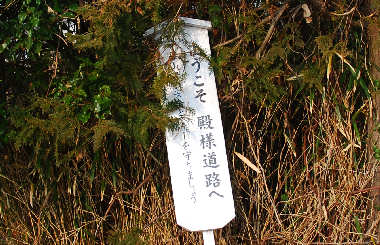 うこそ 殿様道路へ
を守りましょう